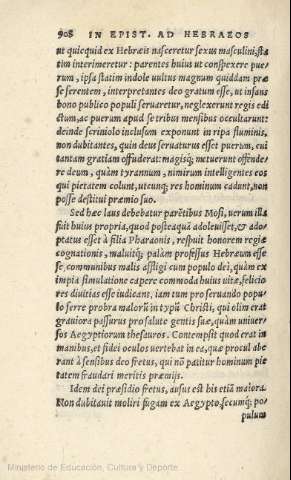 908 IN EPIST. AD HEBRAEOS
ut quicquid ex Hebræis nasceretur sexus masculini, sta
tim interimeretur: parentes huius ut conspexere pue=
rum, ipsa statim indole uultus magnum quiddam præ
se ferentem, interpretantes deo gratum esse, ut infans
bono publico populi seruaretur, neglexerunt regis edi
ctum, ac puerum apud se tribus mensibus occultarunt:
deinde scriniolo inclusum exponunt in ripa fluminis,
non dubitantes, quin deus seruaturus esset puerum, cui
tantam gratiam offuderat: magisq; metuerunt offende=
re deum, quàm tyrannum, nimirum intelligentes eos
qui pietatem colunt, utcunq; res hominum cadunt, non
posse destitui præmio suo.
Sed hæc laus debebatur parẽtibus Mosi, uerum illa
fuit huius propria, quod posteaquã adoleuisset, & ado=
ptatus esset à filia Pharaonis, respuit honorem regiæ
cognationis, maluitq; palàm professus Hebræum esse
se, communibus malis affligi cum populo dei, quàm ex
impia simulatione capere commoda huius uitæ, felicio
res diuitias esse iudicans, iam tum pro seruando popu=
lo ferre probra malorũ in typũ Christi, qui olim erat
grauiora passurus pro salute gentis suæ, quàm uniuer=
sos Aegyptiorum thesauros. Contempsit quod erat in
manibus, et fidei oculos uertebat in ea, quæ procul abe
rant à sensibus deo fretus, qui nõ patitur hominum pie
tatem fraudari meritis præmijs.
Idem dei præsidio fretus, ausus est his etiã maiora.
Non dubitauit moliri fugam ex Aegypto, secumq; po=
pulum
Ministerio de Educación, Cultura y Deporte